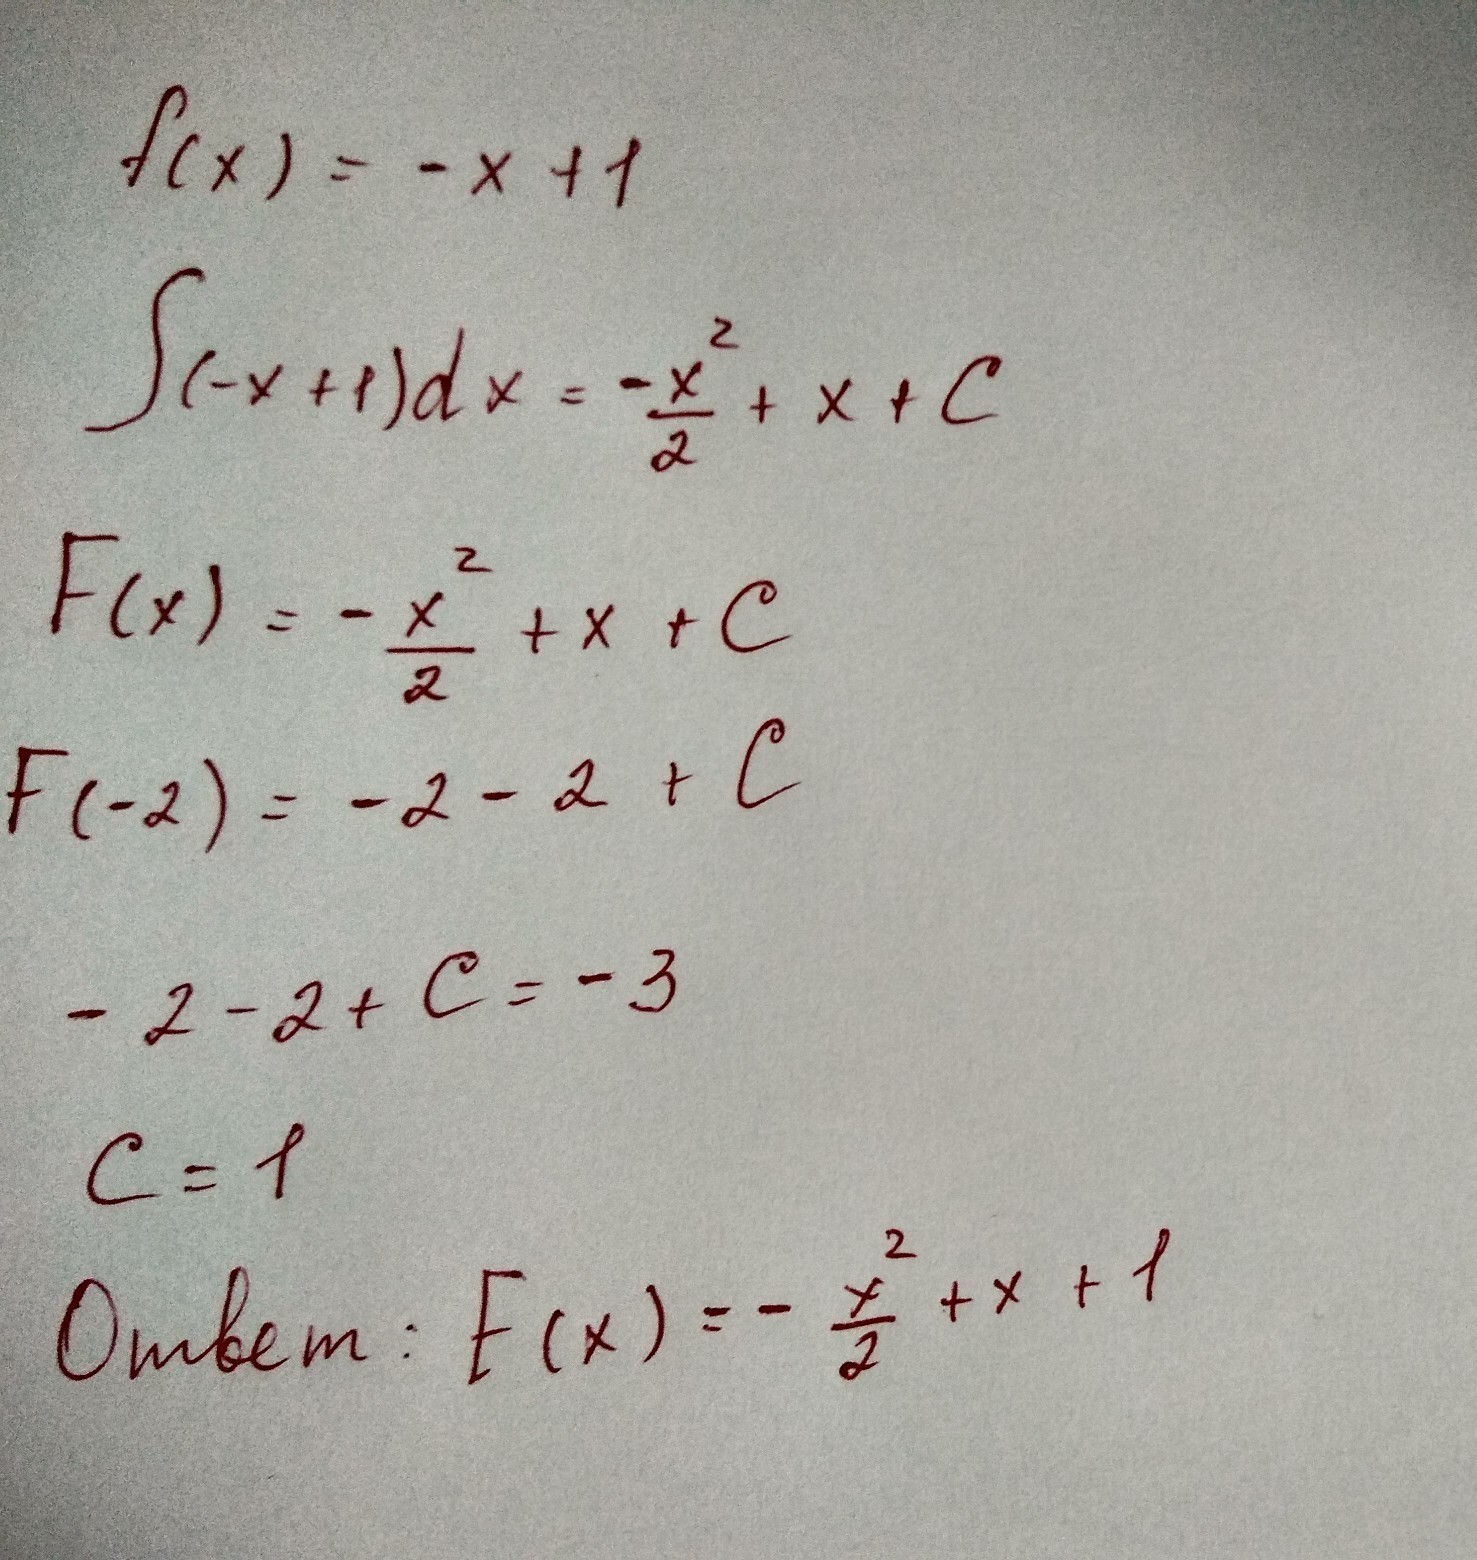 f(x) = -x + 1
∫(-x+1)dx = -x²/2 + x + C
F(x) = -x²/2 + x + C
F(-2) = -2 - 2 + C
-2-2+C = -3
C = 1
Ответ: F(x) = -x²/2 + x + 1